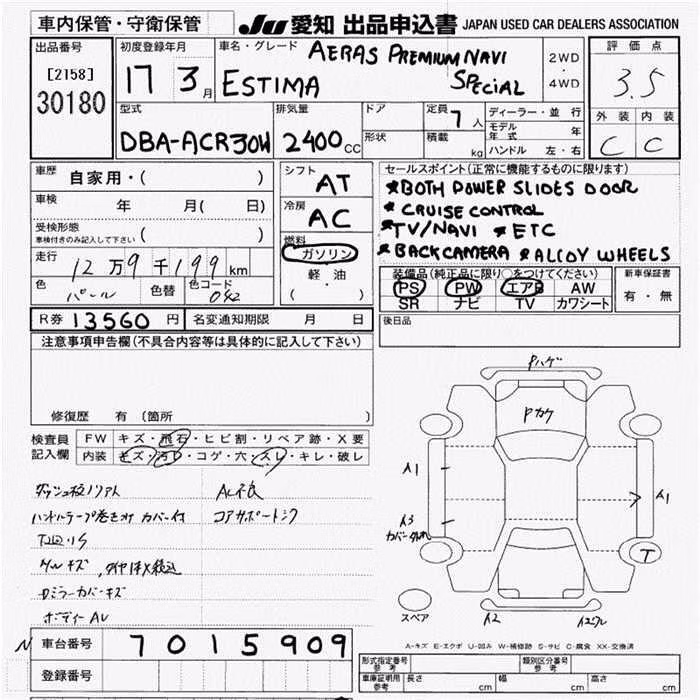 車内保管・守衛保管 JU 愛知 出品申込書 JAPAN USED CAR DEALERS ASSOCIATION
出品番号 初度登録年月 車名・グレード AERAS PREMIUM NAVI 2WD 評価点
[2158] 17 3月 ESTIMA SPECIAL ・ 4WD 3.5
30180
型式 排気量 ドア 定員 7人 ディーラー・並行 外装 内装
DBA-ACR30W 2400cc 形状 積載 kg モデル年式 年 C C
ハンドル 左・右
車歴 自家用・( ) シフト AT セールスポイント(正常に機能するものに限ります)
車検 年 月( 日) 冷房 AC ★BOTH POWER SLIDES DOOR
受検形態 ( ) ★CRUISE CONTROL
車検付きのみ記入して下さい 燃料 ★TV/NAVI ★ETC
走行 12万9千199km ガソリン ★BACKCAMERA ★ALLOY WHEELS
色 パール 色替 色コード 042 軽油 ( ・ )
装備品(純正品に限り○をつけてください) 新車保証書
PS PW エアB AW 有・無
SR ナビ TV カワシート
R券 13560円 名変通知期限 月 日 後日品
注意事項申告欄(不具合内容等は具体的に記入して下さい)
修復歴 有(箇所 )
検査員 FW キズ・飛石・ヒビ割・リペア跡・X要
記入欄 内装 キズ・汚レ・コゲ・穴・スレ・キレ・破レ
AC不良
ハンドルテープ巻き付 カバー付 コアサポートシク
ゲルキズ
ドミラーカバーキズ
ボディーAU
Pハゲ
Pカケ
A1
A1
A3
カバー外れ
T
スペア A2
A-キズ E-エクボ U-凹み W-補修跡 S-サビ C-腐食 XX-交換済
N 車台番号 7015909
登録番号
形式指定番号 参考 類別区分番号 参考
車庫証明用 参考 長さ cm 幅 cm 高さ cm